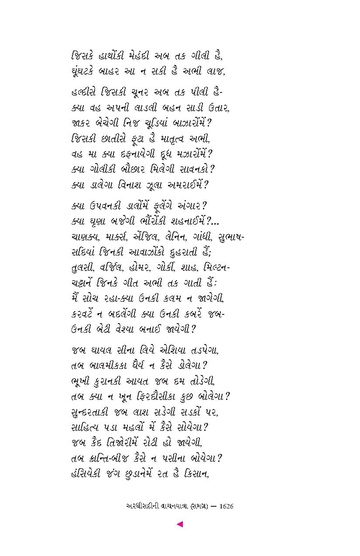 જિસકે હાથોંકી મેહંદી અબ તક ગીલી હૈ,
ઘૂંઘટકે બાહર આ ન સકી હૈ અભી લાજ,
હલ્દીસે જિસકી ચૂનર અબ તક પીલી હૈ-
ક્યા વહ અપની લાડલી બહન સાડી ઉતાર,
જાકર બેચેગી નિજ ચૂડિયાં બાઝારોંમેં?
જિસકી છાતીસે ફૂટા હૈ માતૃત્વ અભી,
વહ મા ક્યા દફનાયેગી દૂધ મઝારોંમેં?
ક્યા ગોલીકી બૌછાર મિલેગી સાવનકો?
ક્યા ડાલેગા વિનાશ ઝૂલા અમરાઈમેં?
ક્યા ઉપવનકી ડાલોંમેં ફૂલેંગે અંગાર?
ક્યા ઘૃણા બજેગી ભૌંરોંકી શહનાઈમેં?...
ચાણક્ય, માર્ક્સ, એંજિલ, લેનિન, ગાંધી, સુભાષ-
સદિયાં જિનકી આવાઝોંકો દુહરાતી હૈં;
તુલસી, વર્જિલ, હોમર, ગોર્કી, શાહ, મિલ્ટન-
ચટ્ટાનેં જિનકે ગીત અભી તક ગાતી હૈં:
મૈં સોચ રહા-ક્યા ઉનકી કલમ ન જાગેગી,
કરવટેં ન બદલેંગી ક્યા ઉનકી કબરેં જબ-
ઉનકી બેટી વેશ્યા બનાઈ જાયેગી?
જબ ઘાયલ સીના લિયે એશિયા તડપેગા,
તબ બાલમીકકા ધૈર્ય ન કૈસે ડોલેગા?
ભૂખી કુરાનકી આયત જબ દમ તોડેગી,
તબ ક્યા ન ખૂન ફિરદૌસીકા કુછ બોલેગા?
સુન્દરતાકી જબ લાશ સડેગી સડકોં પર,
સાહિત્ય પડા મહલોં મેં કૈસે સોયેગા?
જબ કૈદ તિજોરીમેં રોટી હો જાયેગી,
તબ ક્રાન્તિ-બીજ કૈસે ન પસીના બોયેગા?
હંસિયેકી જંગ છુડાનેમેં રત હૈ કિસાન,
અરધીસદીની વાચનયાત્રા (સમગ્ર) — 1626